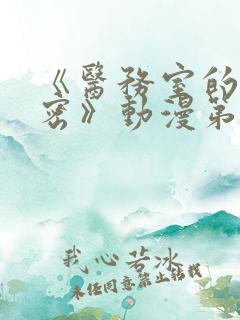 《醫務室的
密》動漫第
我心若冰
未经同意禁止转载